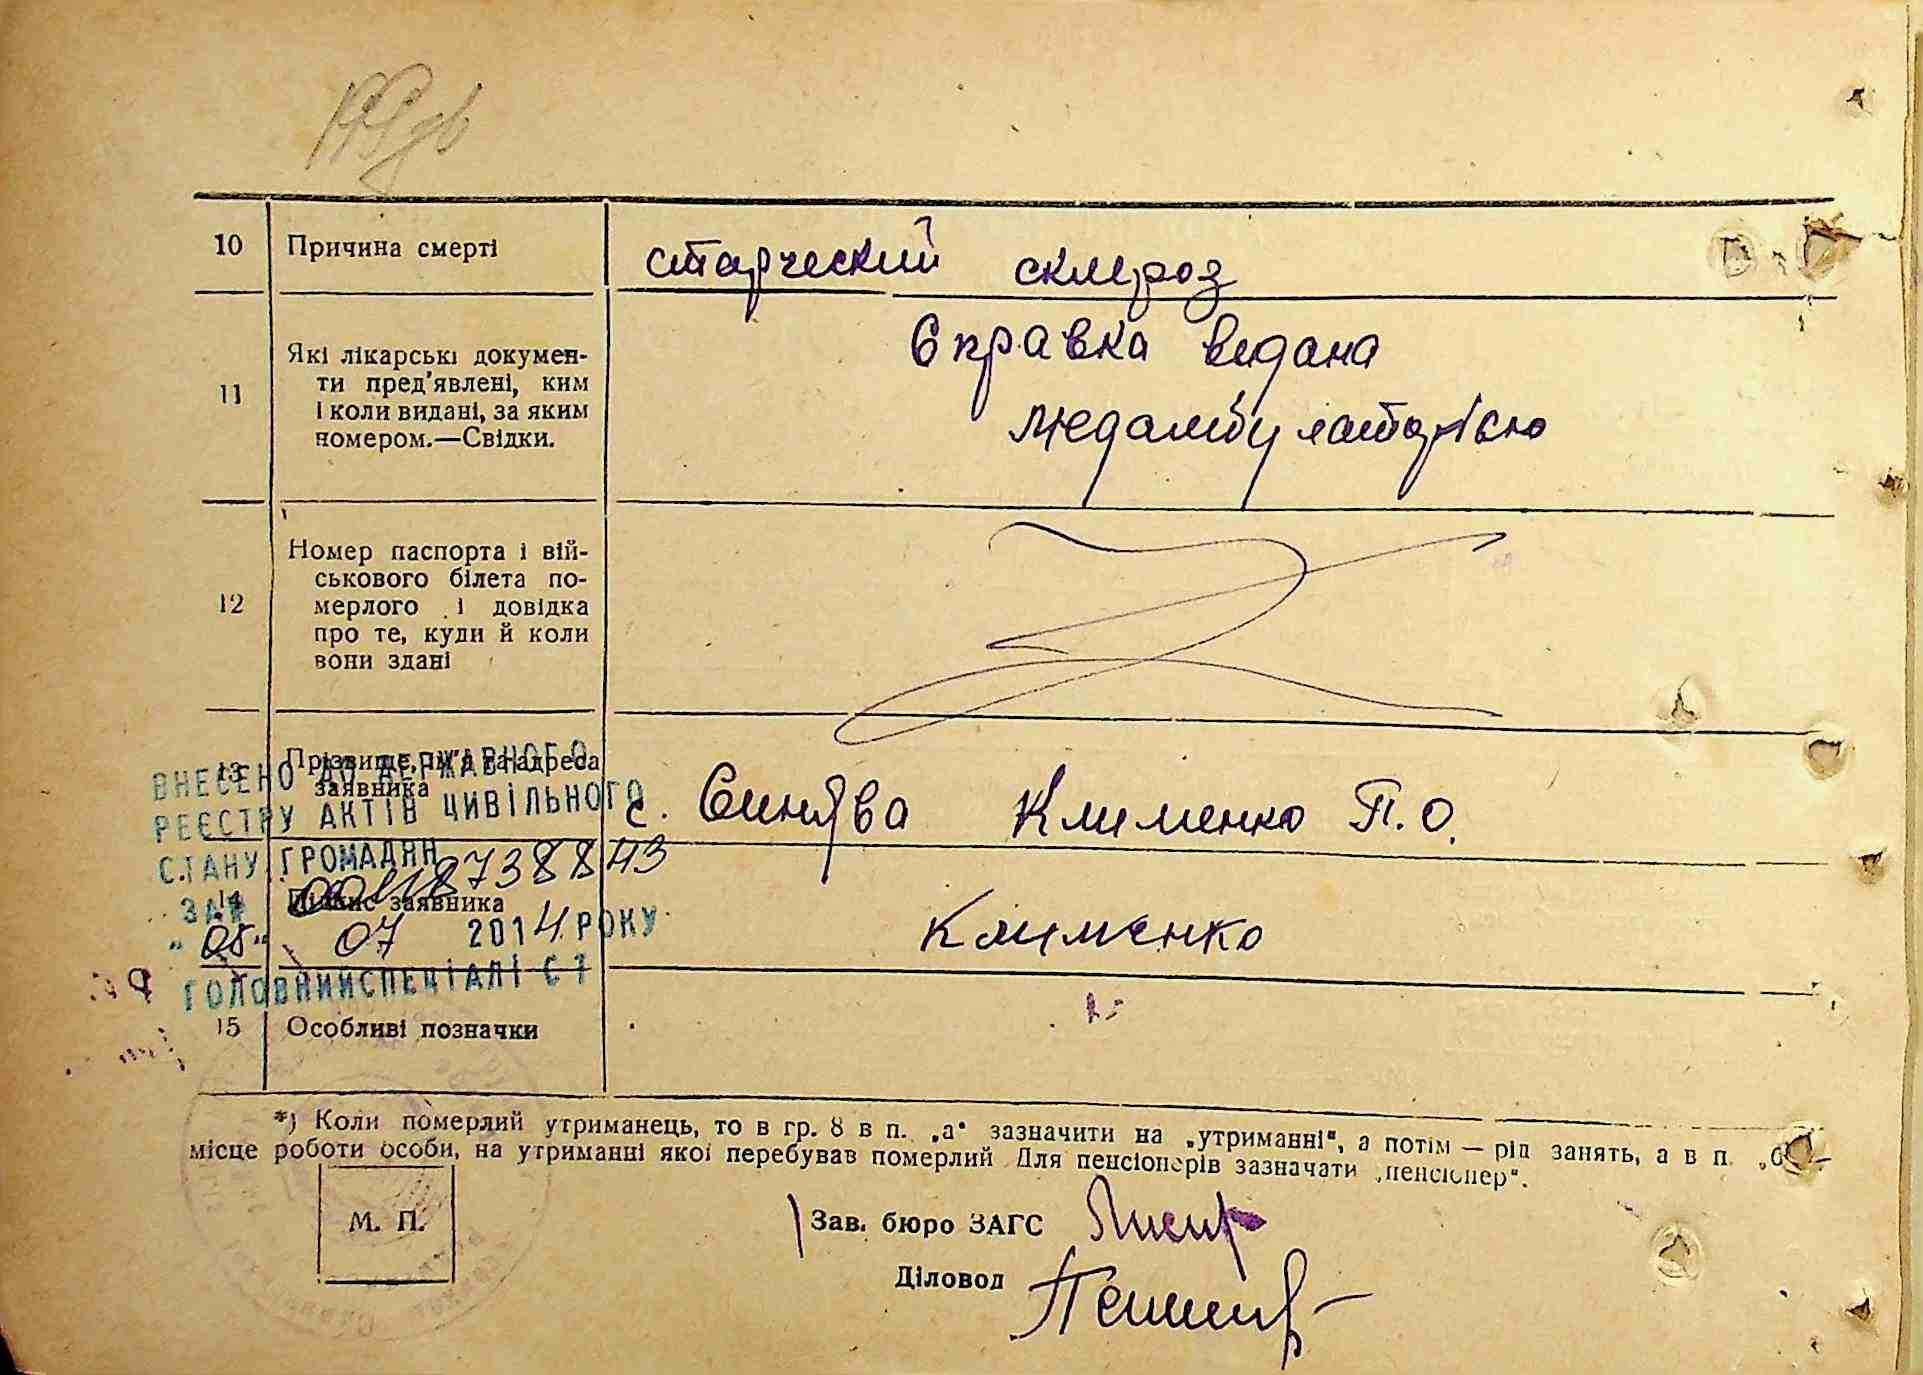 10 Причина смерті
старческий склероз
11 Які лікарські докумен-
ти пред'явлені, ким
і коли видані, за яким
номером.—Свідки.
Справка видана
медамбулаторією
12 Номер паспорта і вій-
ськового білета по-
мерлого і довідка
про те, куди й коли
вони здані
13 Прізвище, ім'я та адреса
заявника
с. Синява Клименко П.О.
14 Підпис заявника
Клименко
ВНЕСЕНО ДО ДЕРЖАВНОГО
РЕЄСТРУ АКТІВ ЦИВІЛЬНОГО
СТАНУ ГРОМАДЯН
ЗА №
"05" 07 2014 РОКУ
ГОЛОВНИЙ СПЕЦІАЛІСТ
15 Особливі позначки
*) Коли померлий утриманець, то в гр. 8 в п. „а“ зазначити на „утриманні“, а потім — рід занять, а в п.
місце роботи особи, на утриманні якої перебував померлий Для пенсіонерів зазначати „пенсіонер“.
М. П.
Зав. бюро ЗАГС
Діловод